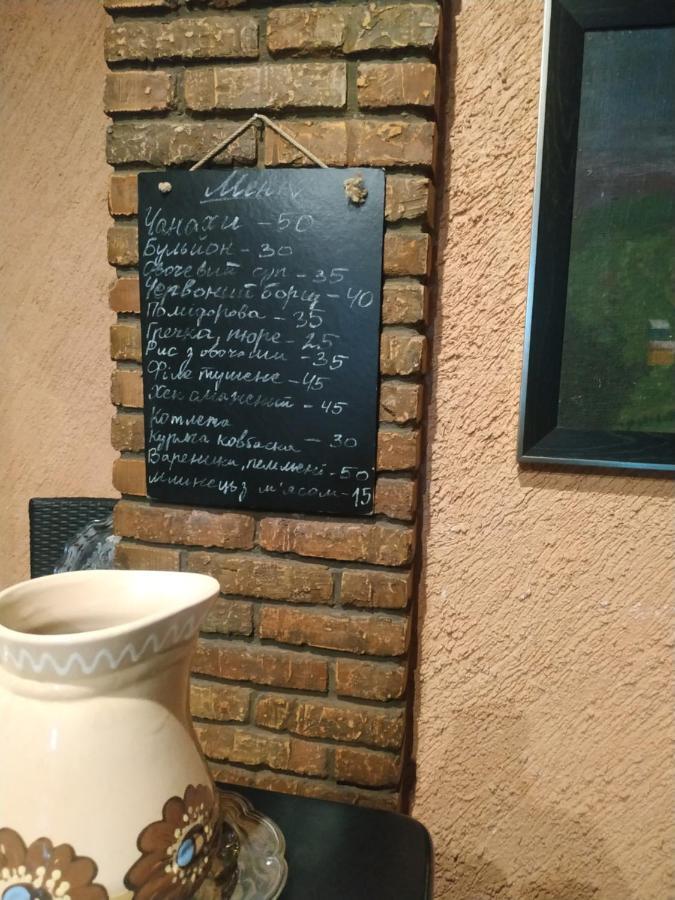 Меню
Чанахи - 50
Бульйон - 30
Овочевий суп - 35
Червоний борщ - 40
Помідорова - 35
Гречка, пюре - 25
Рис з овочами - 35
Філе тушене - 45
Хек смажений - 45
Котлета
Куряча ковбаска - 30
Вареники, пельмені - 50
Млинець з м'ясом - 15